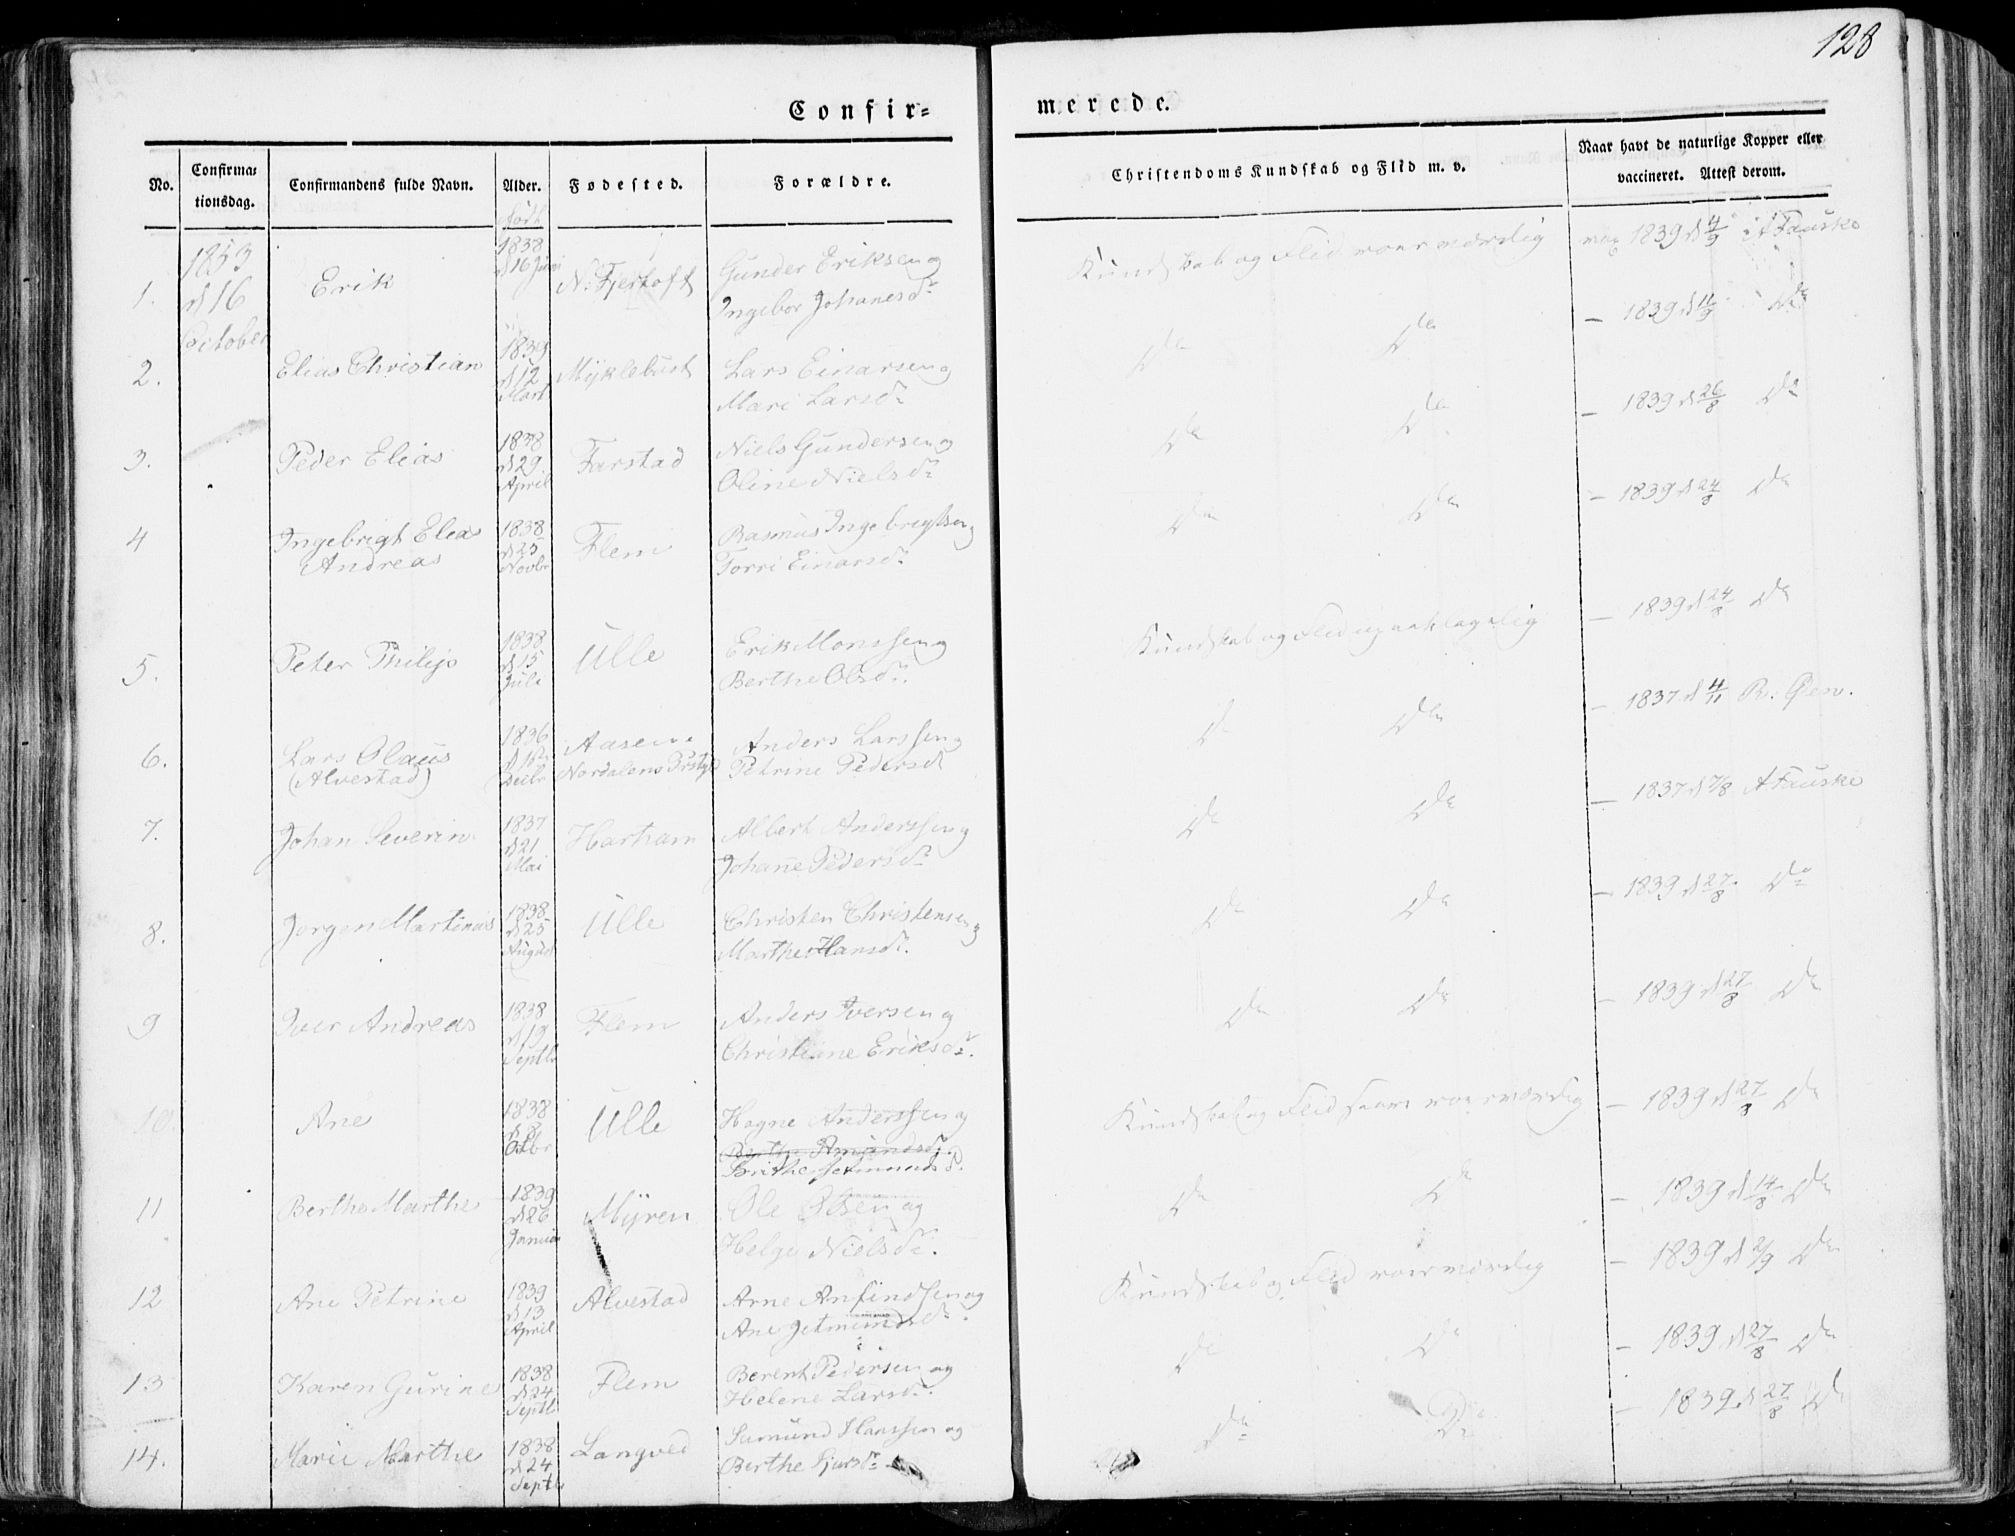 128
Confir=
merede.
No.
Confirma=
tionsdag.
Confirmandens fulde Navn.
Alder.
Fødested.
Forældre.
Christendoms Kundskab og Flid m. v.
Naar havt de naturlige Kopper eller
vaccineret. Attest derom.
født
1853
d 16
October
1.
Erik
1838
d 16 Juni
N: Fjertoft
Gunder Eriksen og
Ingebor Johanesdr
Kundskab og Flid
1839 d 4/9 i A Fauske
2.
Elias Christian
1839
d 12
Mart
Myklebust
Lars Einarsen og
Mari Larsdr
Do
Do
1839 d 11/9 Do
3.
Peder Elias
1838
d 29
April
Farstad
Niels Gundersen og
Oline Nielsdr
Do
Do
1839 d 26/8 Do
4
Ingebrigt Elias
Andreas
1838
d 25
Novbr
Flem
Rasmus Ingebrigtsen og
Torri Einarsdr
Do
Do
1839 d 24/8 Do
5.
Peter Philip
1838
d 15
Juli
Ulle
Erik Monssen og
Berthe Olsdr.
Kundskab og Flid
1839 d 24/8 Do
6.
Lars Olaus
(Alvestad)
1836
Decbr
Aasen
Nordalens Prstgd
Anders Larssen og
Petrine Pedersd
Do
Do
1837 d 4/11
7.
Johan Severin
1837
d 21
Mai
Harham
Albert Anderssen og
Johane Pedersdr
Do
Do
1837 d 7/8 A Fauske
8.
Jørgen Martinus
1838
d 25
August
Ulle
Christen Christensen og
Marthe Hansdr.
Do
Do
1839 d 27/8 Do
9
Iver Andreas
1838
d 19
Septbr
Flem
Anders Iversen og
Christiane Eriksdr.
Do
Do
1839 d 27/8 Do
10.
Ane
1838
d 8
Octbr
Ulle
Hagne Anderssen og
Berthe Amundsdr.
Kundskab og Flid
1839 d 27/8 Do
11
Berthe Marthe
1839
d 26
Januar
Myren
Ole Olsen og
Helge Nielsdr.
Do
Do
1839 d 14/8 Do
12
Ane Petrine
1839
d 13
April
Alvestad
Arne Anfindsen og
Ane Jetmundsdr.
Kundskab og Flid
1839 d 2/9 Do
13
Karen Gurine
1838
d 24
Septbr
Flem
Berent Pedersen og
Helene Larsdr.
Do
Do
1839 d 27/8 Do
14.
Marie Marthe
1838
d 24
Septbr
Langved
Hanssen og
Berthe
Do
Do
1839 d 27/8 Do